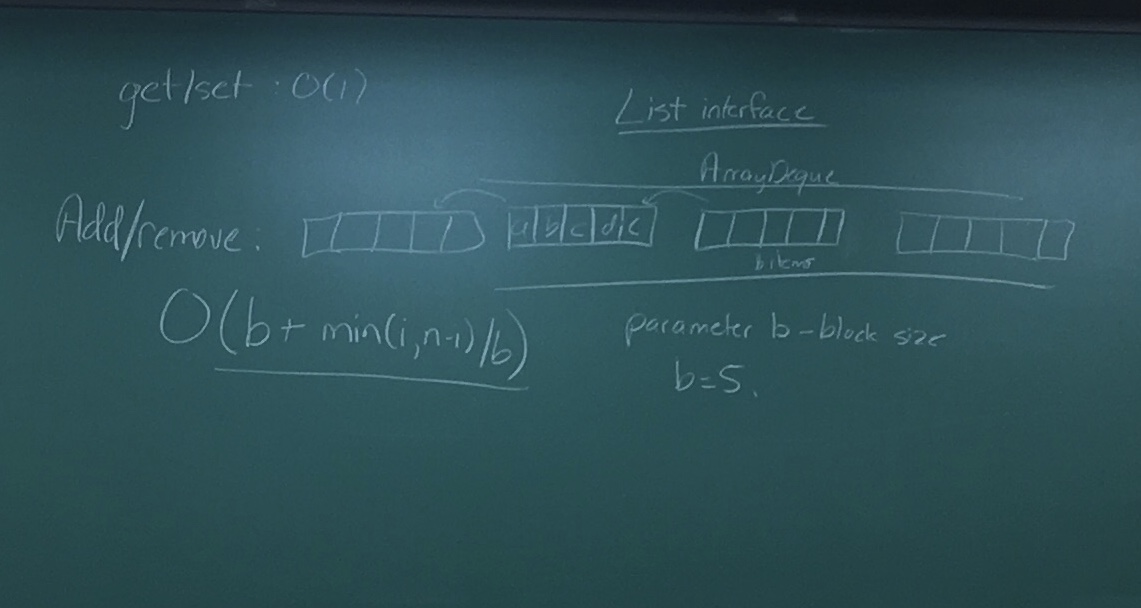 get/set : O(1)
List interface
ArrayDeque
Add/remove :
a b c d e
b items
O(b + min(i, n-i)/b)
parameter b - block size
b=5.